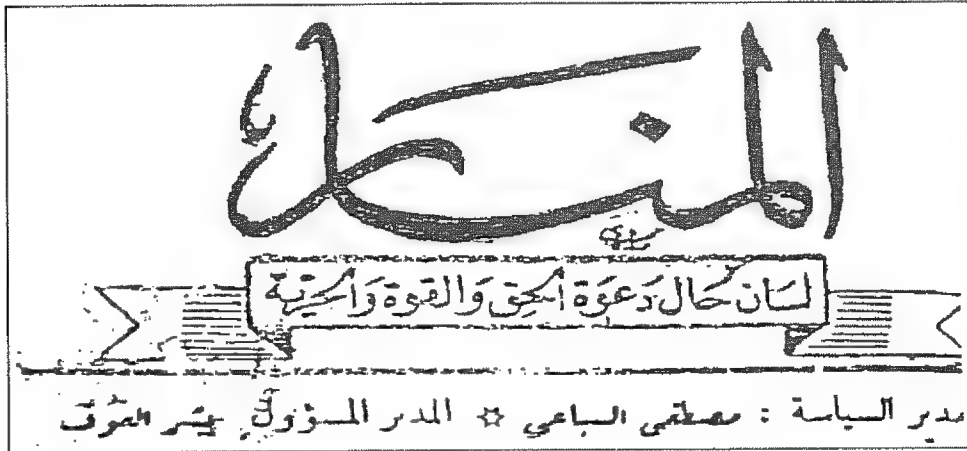 المنار
لسَان حَال دَعوَة الحق وَالقوة وَالحرّية
مدير السياسة : مصطفى السباعي ☆ المدير المسؤول بشير العوف